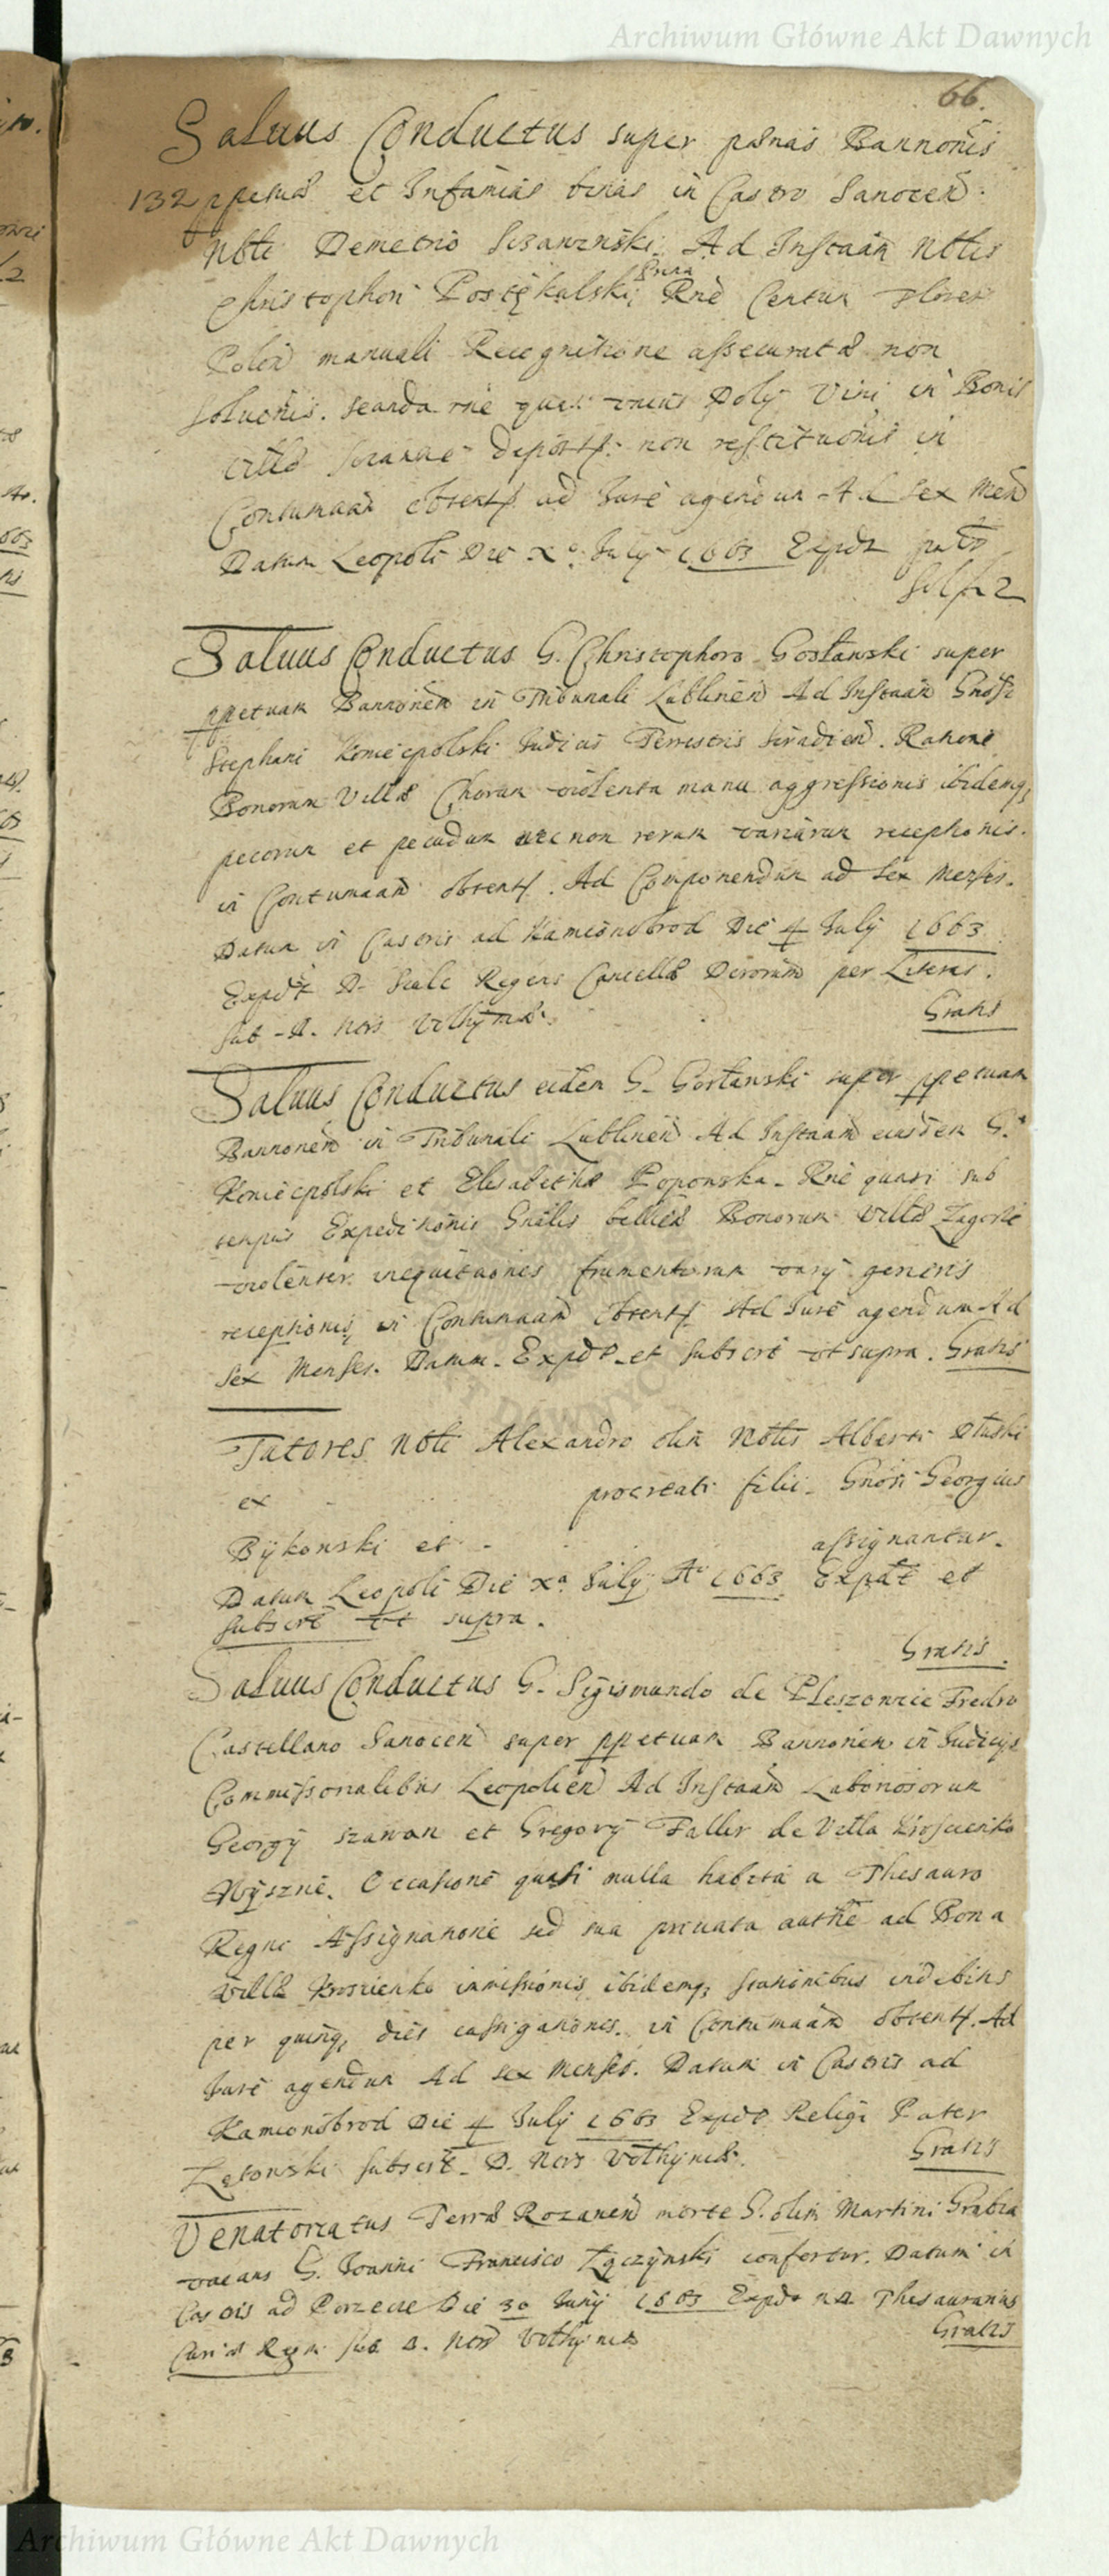 Archiwum Główne Akt Dawnych
66.
Saluus Conductus super pænas Bannonis
132 ppetuæ et Infamiæ binas in Castro Sanocen.
Nbli Demetrio Ad Instaãn Nblis
Christophori Rnẽ Centum Flores
Polon manuali Recognitione assecuratæ non
solucõnis. Secunda rnẽ quasi unius Doly Vini in Bonis
villæ deposit. non restitucõnis in
Contumaciam obtent. ad Jure agendum Ad sex Mens
Datum Leopoli Die Xa July 1663 Expdt
Saluus Conductus G. Christophoro Gostawski super
ppetuam Bannonem in Tribunali Lublinen Ad Instaãn Gnosi
Stephani Koniecpolski Judicis Terrestris Siradien. Ratione
Bonorum Villæ Chorun violenta manu aggressionis ibidemq,
pecorum et pecudum nec non rerum variarum receptionis.
in Contumaciam obtent. Ad Componendum ad sex Menses.
Datum in Castris ad Kamionobrod Die 4 July 1663
Expdt D. Regens Cancellæ per Literas.
Sub D. Nris Volhyniæ.
Gratis
Saluus Conductus eidem G. Gostawski super ppetuam
Bannonem in Tribunali Lublinen Ad Instaãn eiusdem G.
Koniecpolski et Elisabethæ Poponska. Rnẽ quasi sub
tempus Expeditionis Gnãlis bellicæ Bonorum Villæ Zagorze
violenter inequitaõnis frumentorum varij generis
receptionis, in Contumaciam obtent. Ad Jure agendum Ad
sex Menses. Datum. Expdt et subscrĩ ut supra. Gratis
Tutores Nbli Alexandro olim Nblis Alberti
ex procreati filii. Gnosi Georgius
Bÿkowski et assignantur.
Datum Leopoli Die Xa July Ao 1663 Expdt et
subscrĩ ut supra.
Gratis.
Saluus Conductus G. Sigismundo de Pleszowice Fredro
Castellano Sanocen super ppetuam Bannonem in Judicijs
Commissorialibus Leopolien Ad Instaãn Laboriosorum
Georgÿ szawan et Gregorÿ Faller de Villa Krosczienko
Wÿsznie. Occasione quasi nulla habita a Thesauro
Regni Assignatione sed sua privata authẽ ad Bona
Villæ Krosczienko inmissionis, ibidemq, stationibus indebitis
per quinq, dies castigationis. in Contumaciam obtent. Ad
Jure agendum Ad sex Menses. Datum in Castris ad
Kamionobrod Die 4 July 1663 Expdt Religi Pater
Zetowski subscrĩ. D. Nris Volhyniæ.
Gratis
Venatoriatus Terræ Rozanen morte G. olim Martini Grabia
vacans G. Joanni Francisco Łączÿnski confertur. Datum in
Castris ad Porzecze Die 30 Junÿ 1663 Expdt Thesaurarius
Curiæ Regni sub D. Nris Volhyniæ
Gratis
Archiwum Główne Akt Dawnych